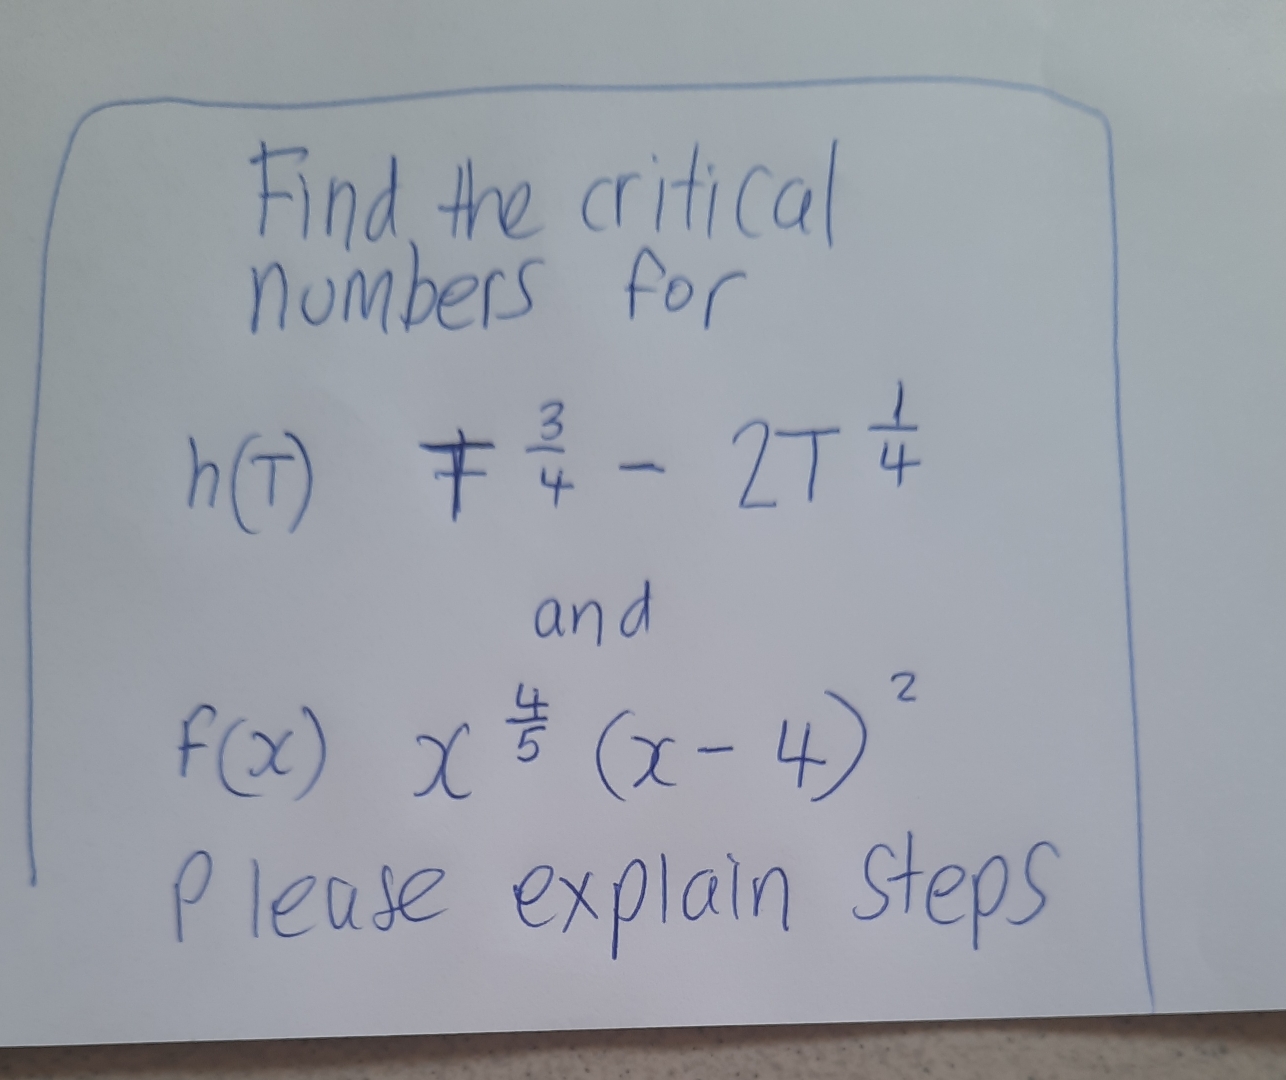 Find the critical
numbers for
h(T) T 3/4 - 2T 1/4
and
f(x) x 4/5 (x - 4) 2
Please explain steps